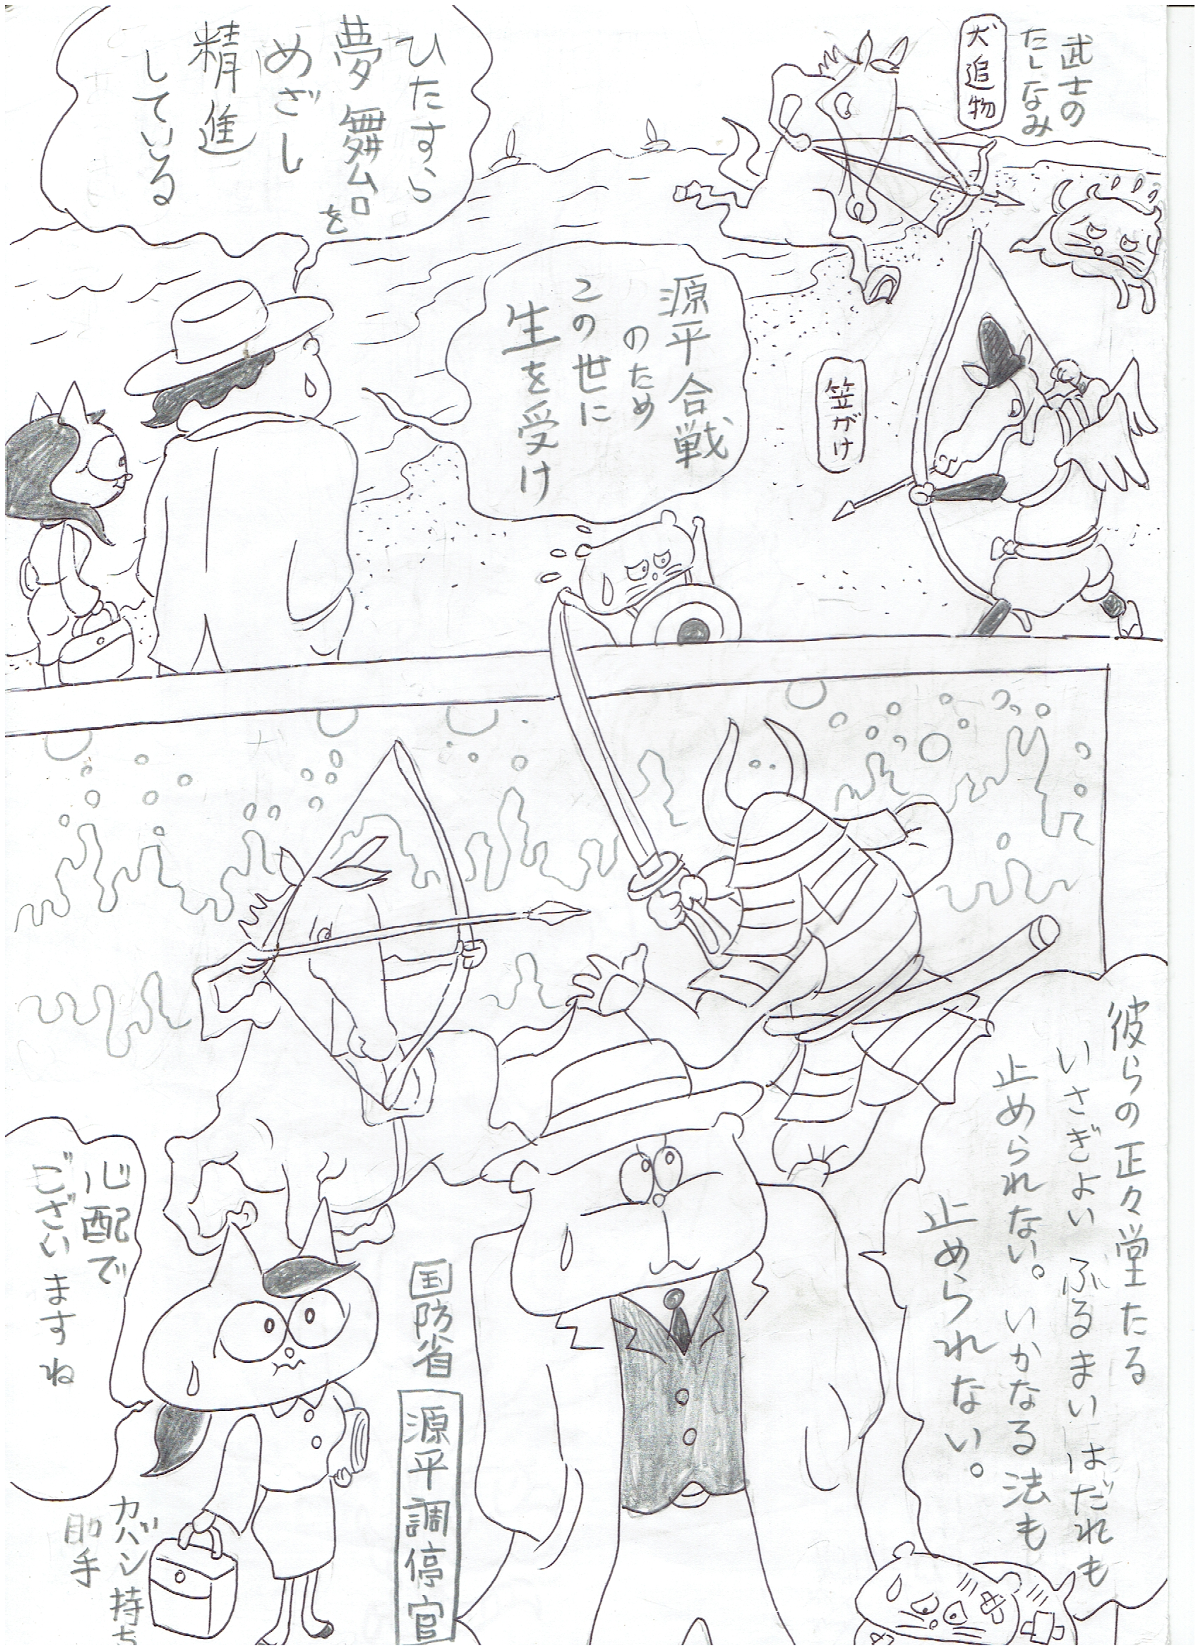 武士の
たしなみ
犬追物
笠がけ
源平合戦
のため
この世に
生を受け
ひたすら
夢舞台を
めざし
精進
している
彼らの正々堂たる
いさぎよい ふるまい はだれも
止められない。いかなる法も
止められない。
国防省
源平調停官
心配で
ございますね
カバン持ち
助手